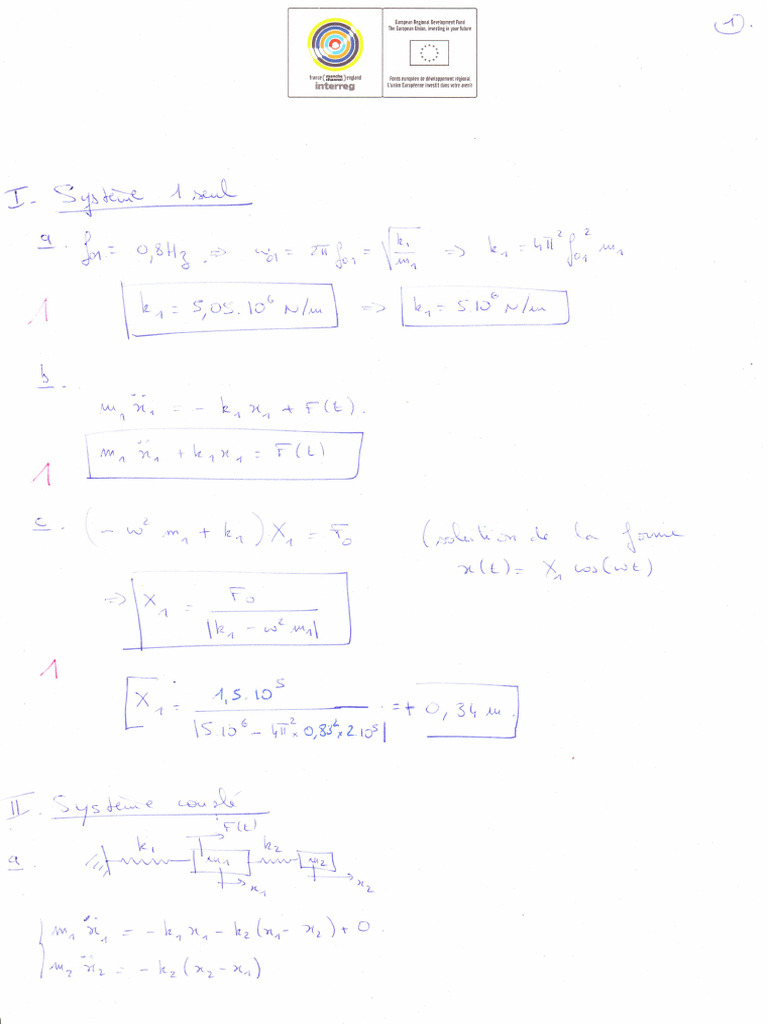 1.
European Regional Development Fund
The European Union, investing in your future
france ( manche channel ) england
interreg
Fonds européen de développement régional
L'union Européenne investit dans votre avenir
I - Système 1 seul
a. f₀₁ = 0,8Hz. ⇒ ω₀₁ = 2π f₀₁ = √(k₁/m₁) ⇒ k₁ = 4π² f₀₁² m₁
1 k₁ = 5,05.10⁶ N/m ⇒ k₁ = 5.10⁶ N/m
b.
m₁ẍ₁ = - k₁x₁ + F(t).
1 m₁ẍ₁ + k₁x₁ = F(t)
c. (- ω² m₁ + k₁) X₁ = F₀ (solution de la forme
x(t) = X₁ cos(ωt)
⇒ X₁ = F₀ / |k₁ - ω² m₁|
1 X₁ = 1,5.10⁵ / |5.10⁶ - 4π² × 0,83² × 2.10⁵| = + 0,34 m.
II. Système couplé
F(t)
a. k₁ m₁ k₂ m₂
x₁ x₂
m₁ẍ₁ = - k₁x₁ - k₂(x₁ - x₂) + 0.
m₂ẍ₂ = - k₂(x₂ - x₁)